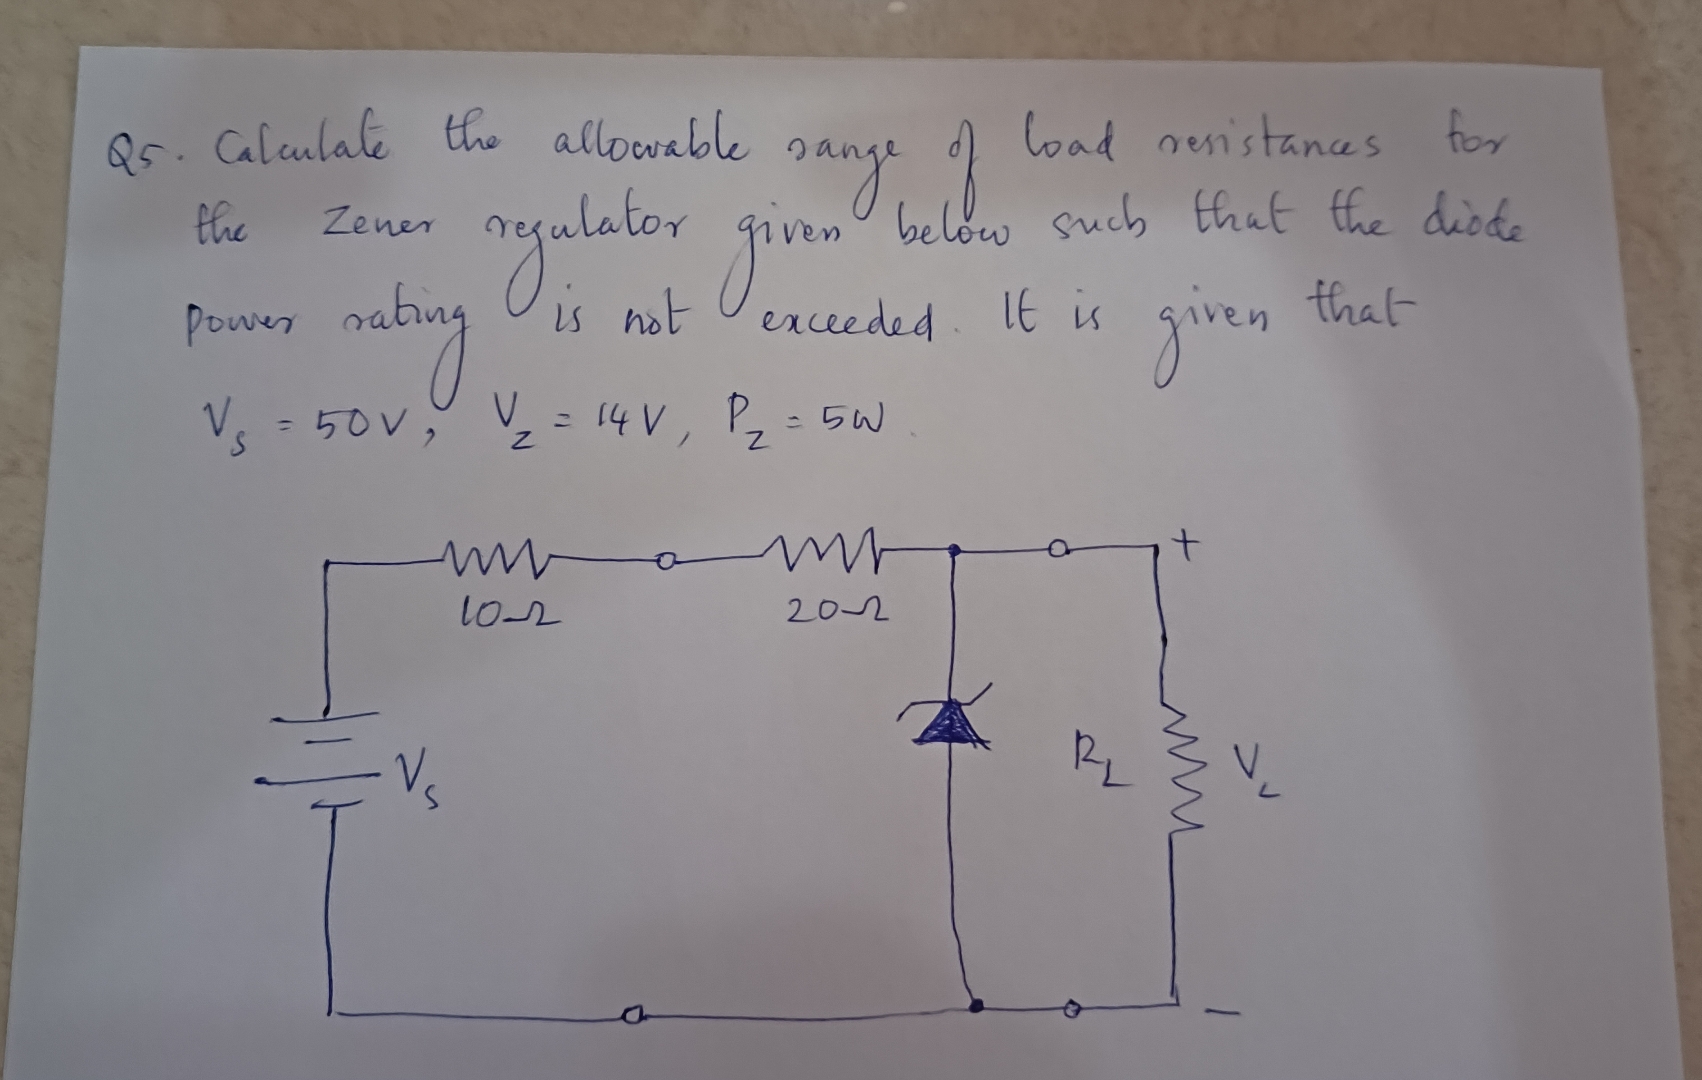 Q5. Calculate the allowable range of load resistances for
the Zener regulator given below such that the diode
power rating is not exceeded. It is given that
V_s = 50V, V_z = 14V, P_z = 5W.
10Ω 20Ω +
V_s R_L V_L
−